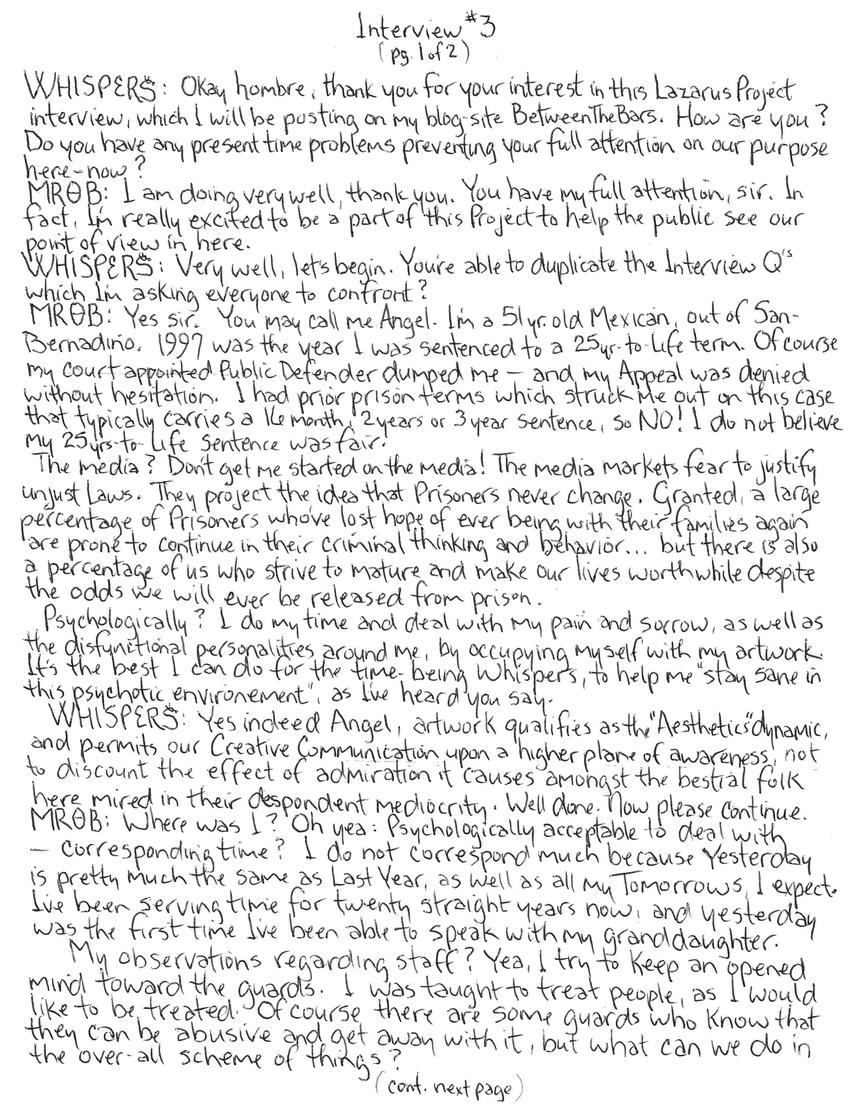 Interview #3
(pg. 1 of 2)
WHISPER$: Okay hombre, thank you for your interest in this Lazarus Project
interview, which I will be posting on my blog-site BetweenTheBars. How are you?
Do you have any present time problems preventing your full attention on our purpose
here-now?
MRΘB: I am doing very well, thank you. You have my full attention, sir. In
fact, I'm really excited to be a part of this Project to help the public see our
point of view in here.
WHISPER$: Very well, let's begin. You're able to duplicate the Interview Q's
which I'm asking everyone to confront?
MRΘB: Yes sir. You may call me Angel. I'm a 51 yr. old Mexican, out of San-
Bernadino. 1997 was the year I was sentenced to a 25yr.-to-Life term. Of course
my court appointed Public Defender dumped me — and my Appeal was denied
without hesitation. I had prior prison terms which struck me out on this case
that typically carries a 16 month, 2 years or 3 year sentence, so NO! I do not believe
my 25yrs-to-Life sentence was fair.
The media? Don't get me started on the media! The media markets fear to justify
unjust Laws. They project the idea that Prisoners never change. Granted, a large
percentage of Prisoners who've lost hope of ever being with their families again
are prone to continue in their criminal thinking and behavior... but there is also
a percentage of us who strive to mature and make our lives worthwhile despite
the odds we will ever be released from prison.
Psychologically? I do my time and deal with my pain and sorrow, as well as
the disfynitional personalities around me, by occupying myself with my artwork.
It's the best I can do for the time-being Whispers, to help me "stay sane in
this psychotic environement", as I've heard you say.
WHISPER$: Yes indeed Angel, artwork qualifies as the "Aesthetics" dynamic,
and permits our Creative Communication upon a higher plane of awareness, not
to discount the effect of admiration it causes amongst the bestial folk
here mired in their despondent mediocrity. Well done. Now please continue.
MRΘB: Where was I? Oh yea: Psychologically acceptable to deal with
— corresponding time? I do not correspond much because Yesterday
is pretty much the same as Last Year, as well as all my Tomorrows, I expect.
I've been serving time for twenty straight years now, and yesterday
was the first time I've been able to speak with my granddaughter.
My observations regarding staff? Yea, I try to keep an opened
mind toward the guards. I was taught to treat people, as I would
like to be treated. Of course there are some guards who know that
they can be abusive and get away with it, but what can we do in
the over-all scheme of things?
(cont. next page)